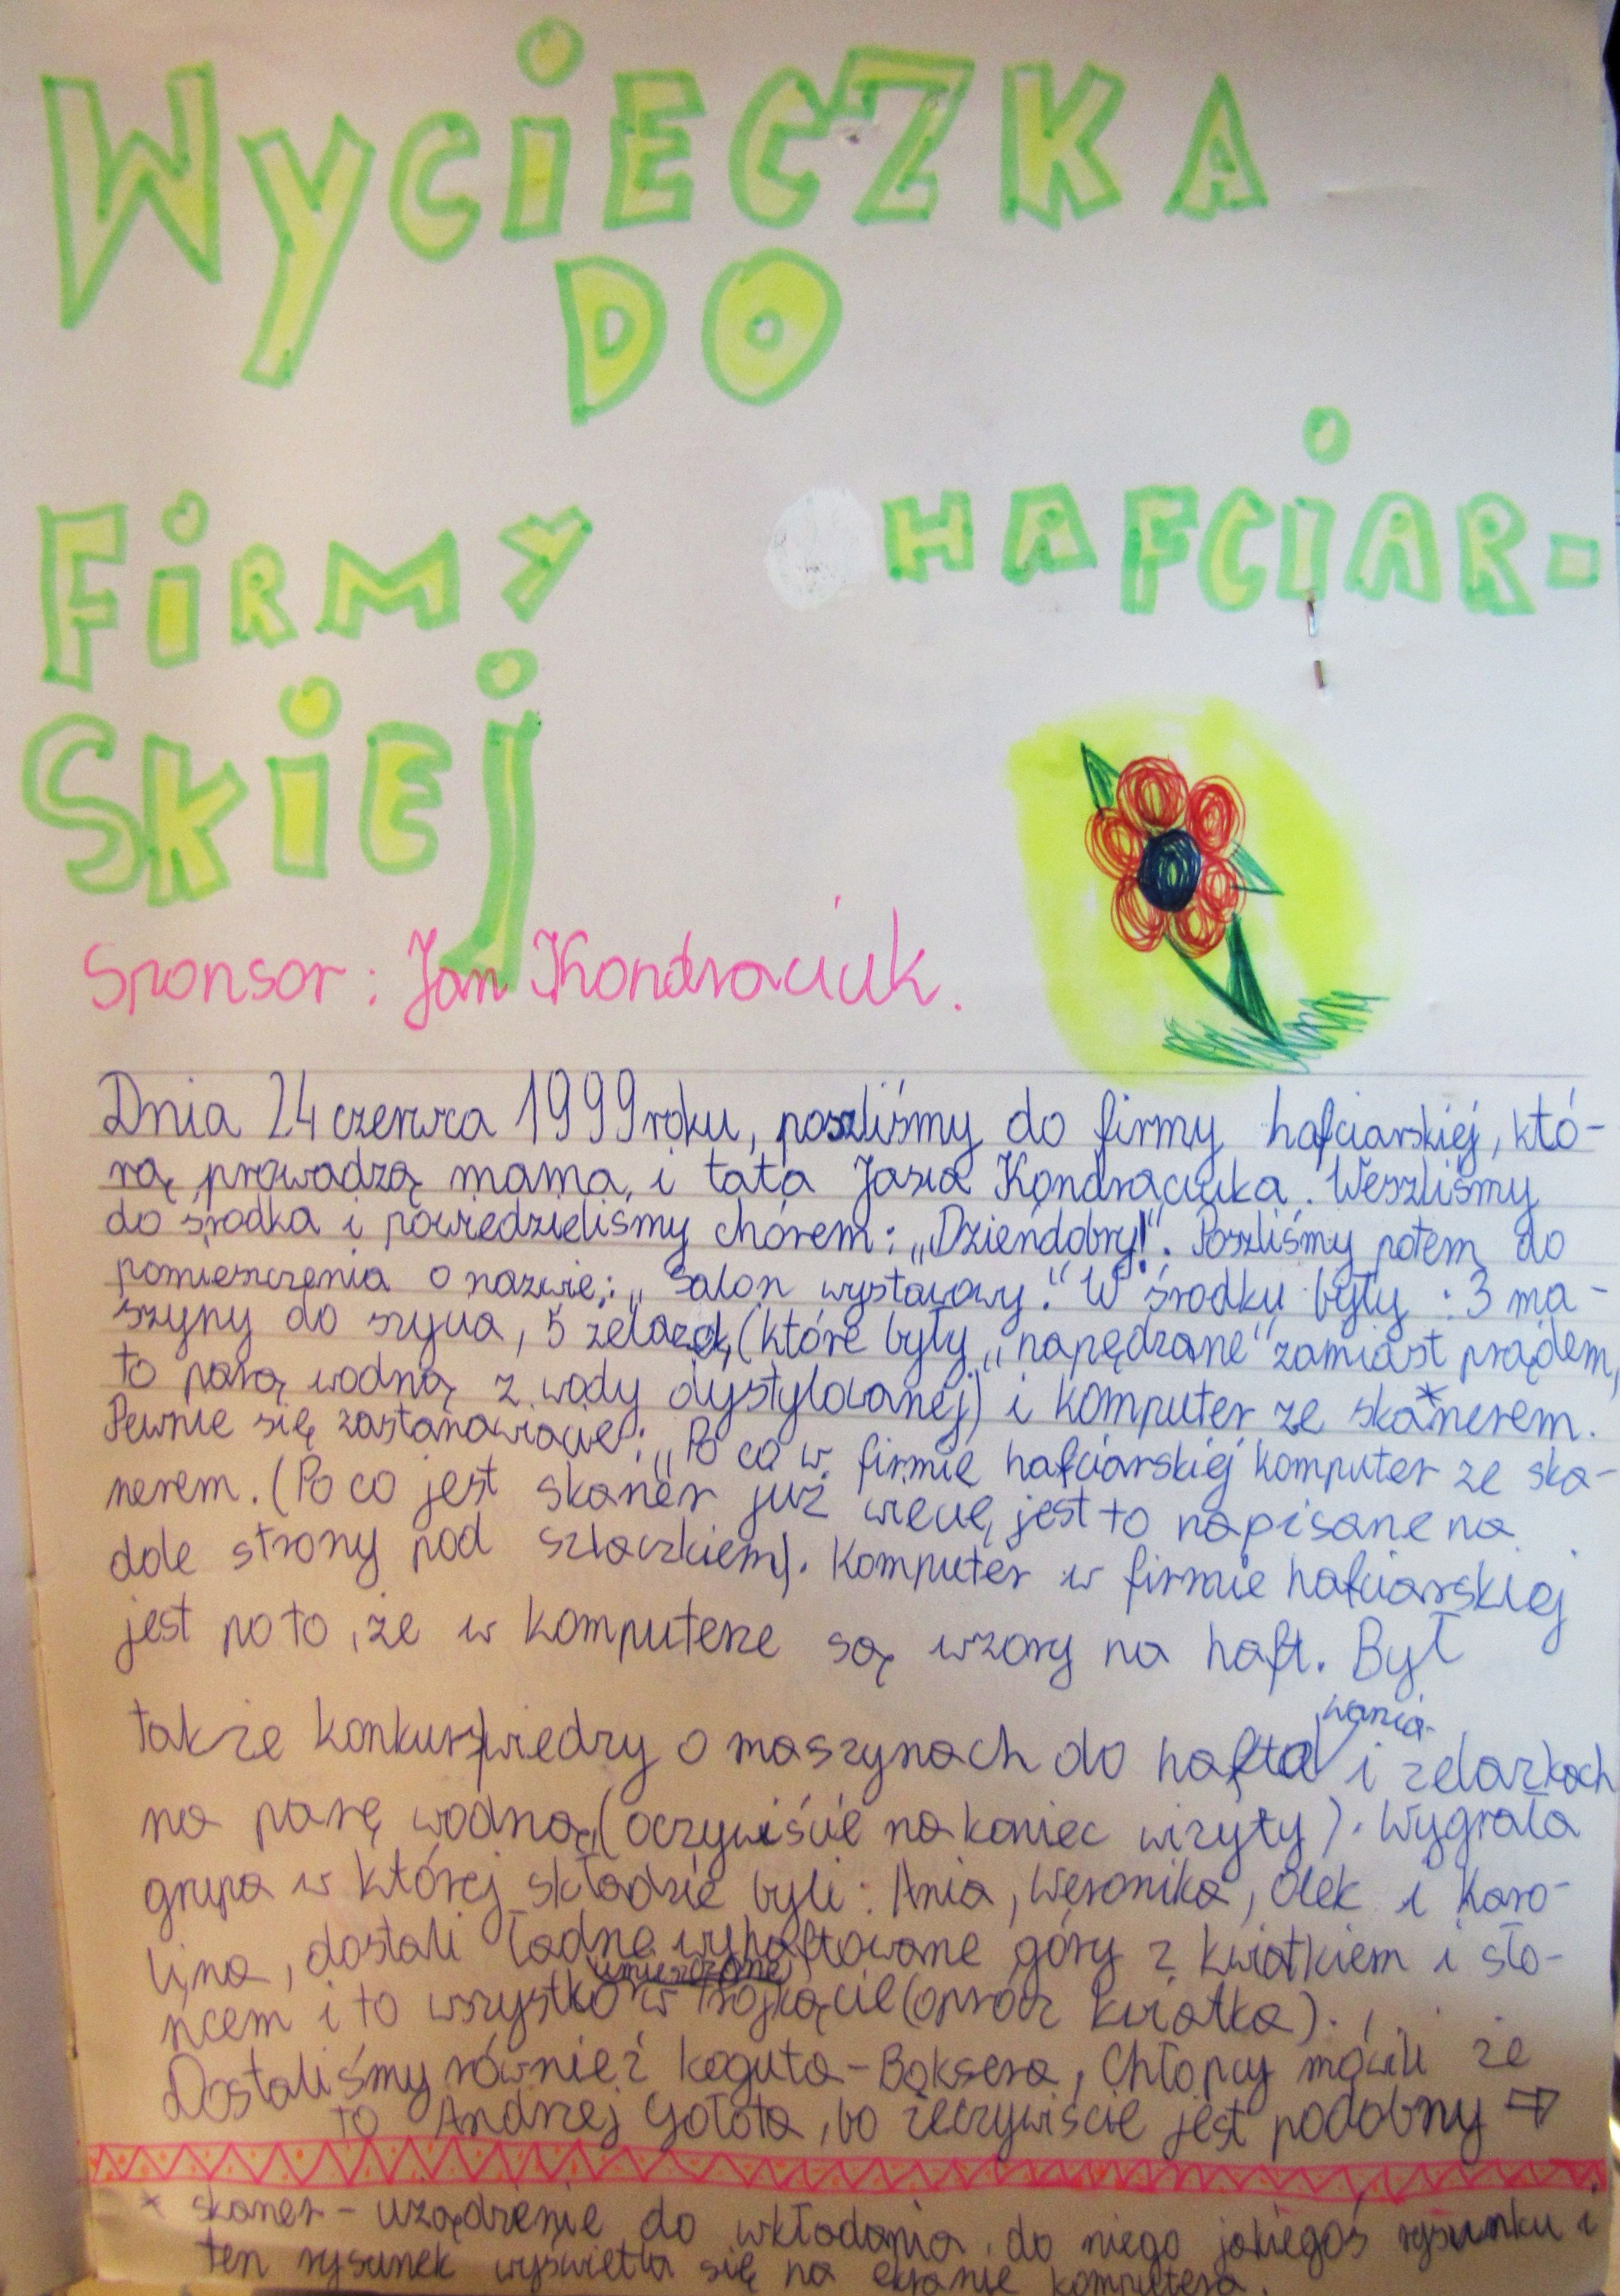 WYCIECZKA
DO
FIRMY HAFCIAR-
SKIEJ
Sponsor: Jan Kondraciuk.
Dnia 24 czerwca 1999 roku, poszliśmy do firmy hafciarskiej, któ-
rą prowadzą mama, i tata Jasia Kondraciuka. Weszliśmy
do środka i powiedzieliśmy chórem: „Dzieńdobry!". Poszliśmy potem do
pomieszczenia o nazwie: „Salon wystawowy." W środku były: 3 ma-
szyny do szycia, 5 żelazek, (które były „napędzane" zamiast prądem,
to parą wodną z wody dystylowanej) i komputer ze ska*nerem.
Pewnie się zastanawiacie: „Po co w firmie hafciarskiej komputer ze ska-
nerem. (Po co jest skaner już wiecie, jest to napisane na
dole strony pod szlaczkiem). Komputer w firmie hafciarskiej
jest po to, że w komputerze są wzory na haft. Był
także konkurs wiedzy o maszynach do haftowania i żelazkach
na parę wodną, (oczywiście na koniec wizyty). Wygrała
grupa w której składzie byli: Ania, Weronika, Olek i Karo-
lina, dostali ładne wyhaftowane góry z kwiatkiem i sło-
ńcem i to wszystko umieszczone w trójkącie (oprócz kwiatka).
Dostaliśmy również koguta-Boksera, Chłopcy mówili że
to Andrzej Gołota, bo rzeczywiście jest podobny ⇨
* skaner - urządzenie do wkładania do niego jakiegoś rysunku i
ten rysunek wyświetla się na ekranie komputera.